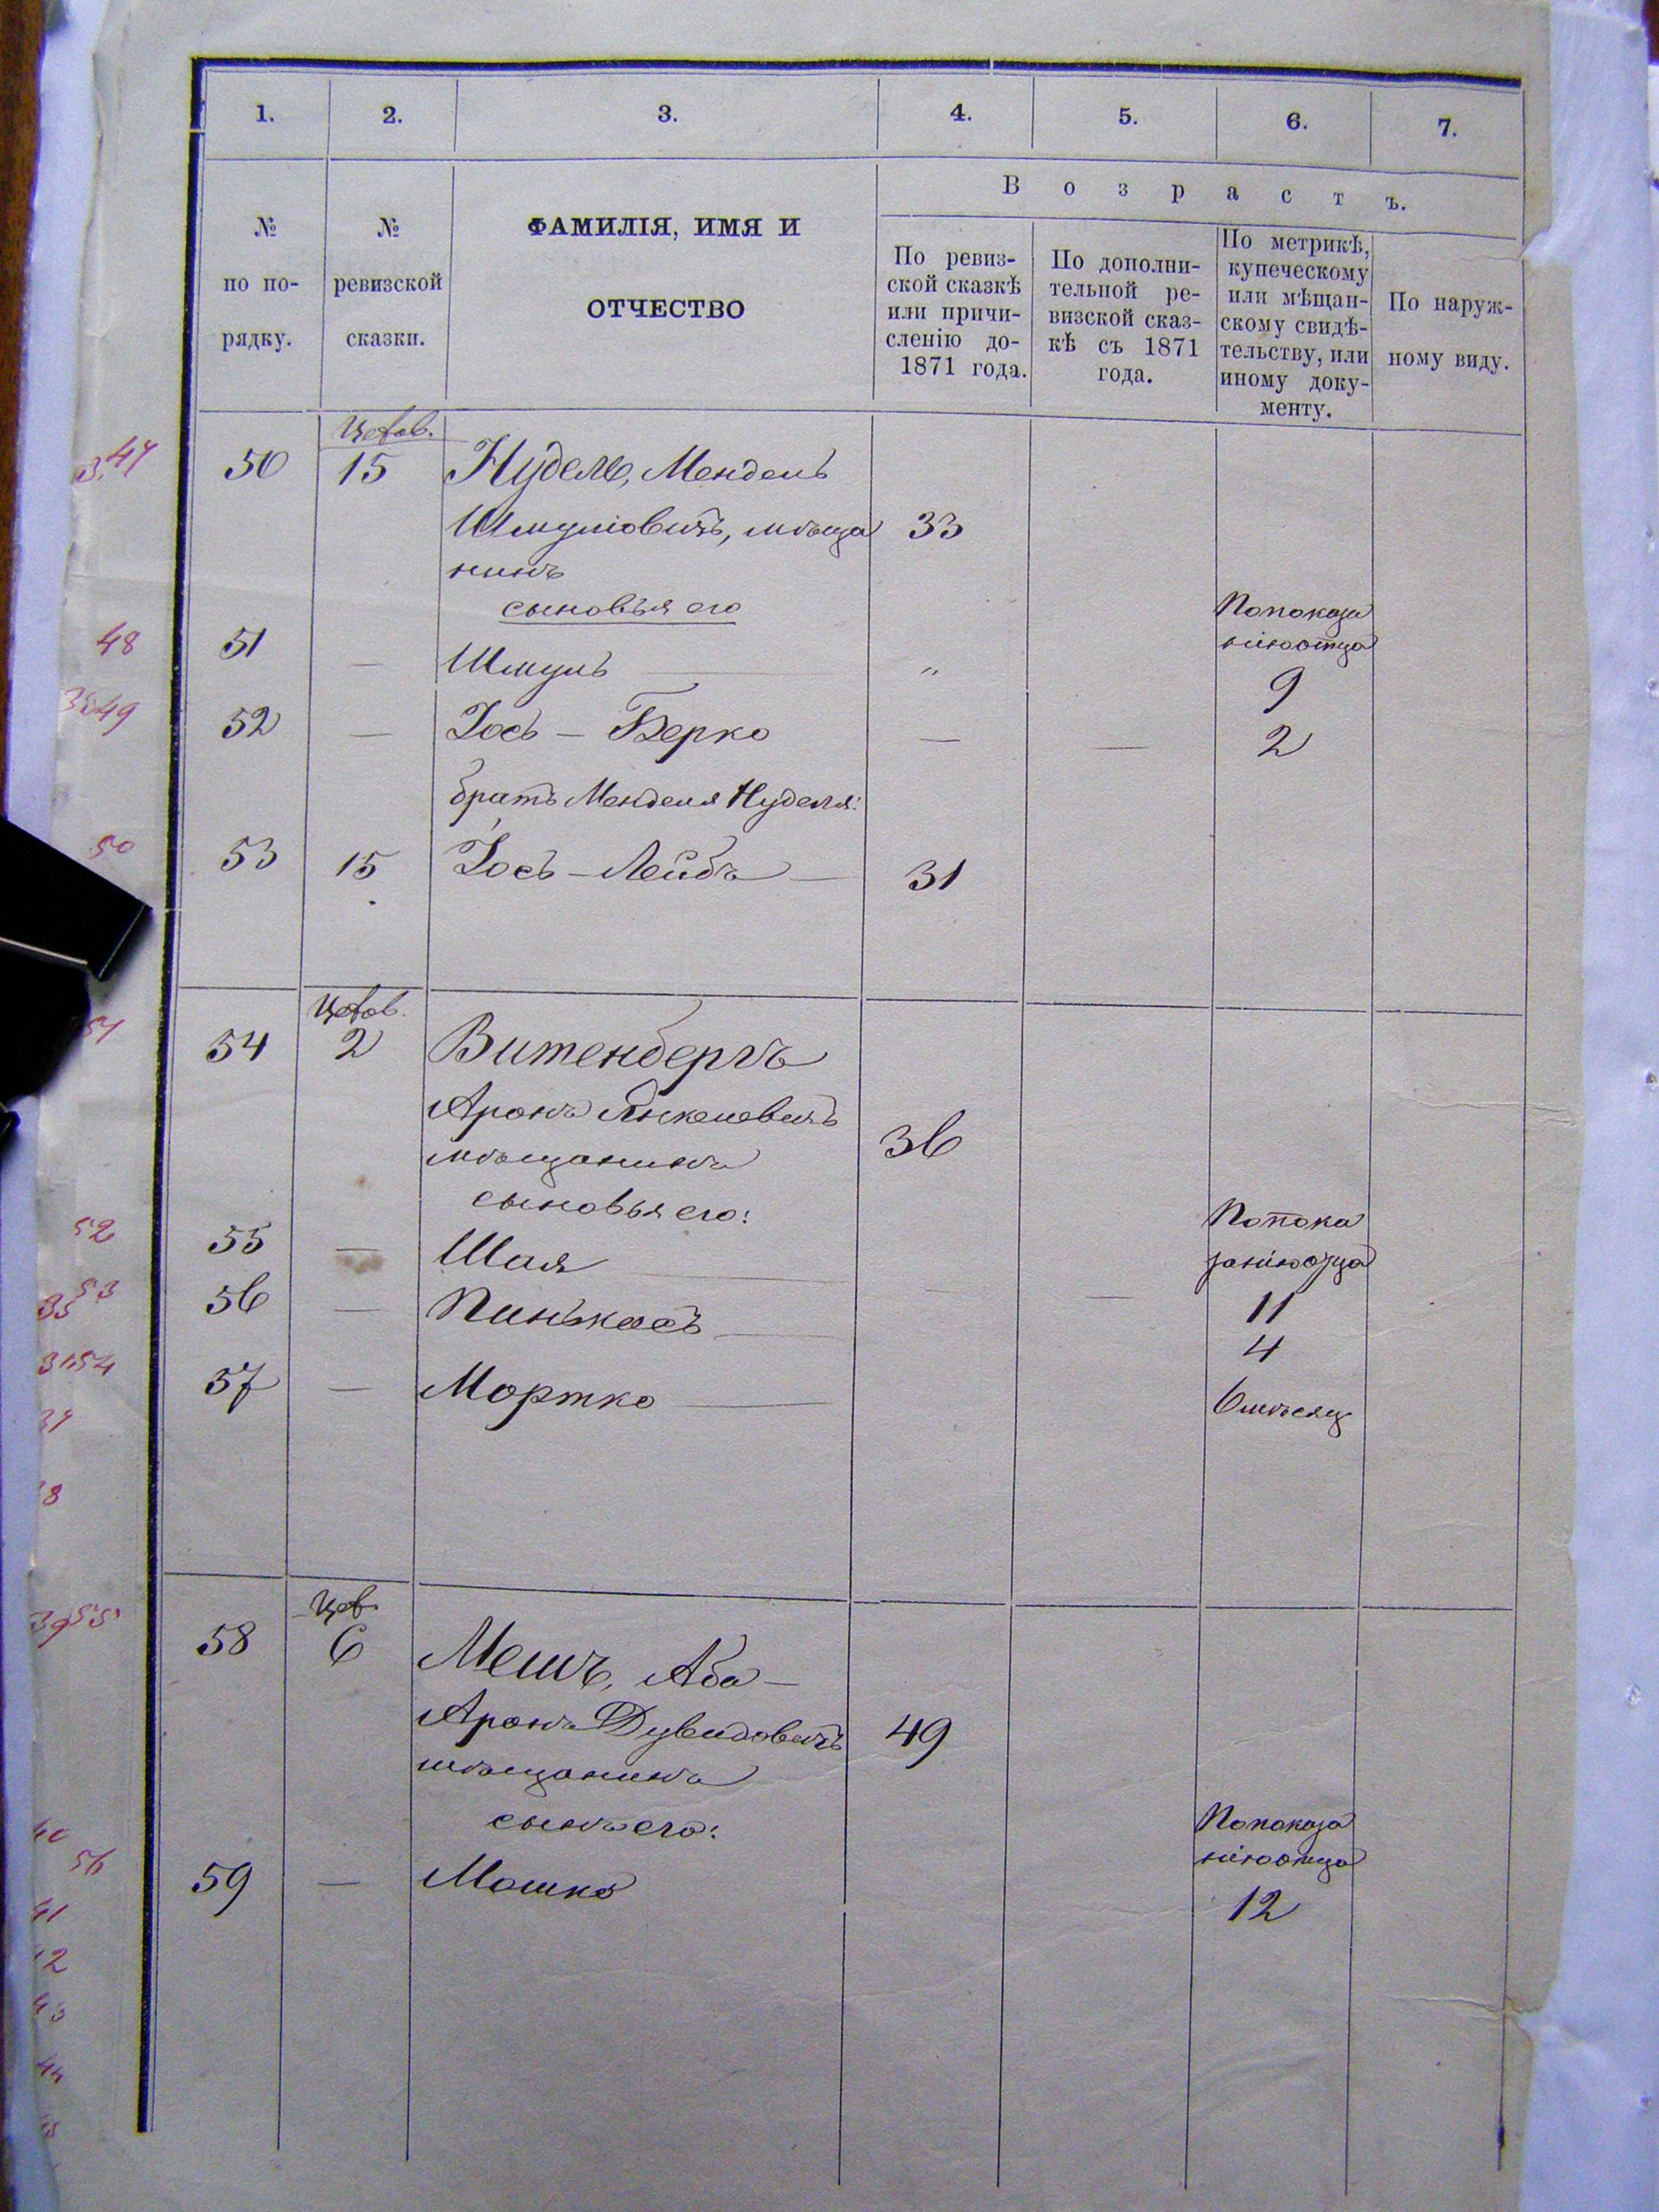 1. 2. 3. 4. 5. 6. 7.
№ по по-рядку.
№ ревизской сказки.
ФАМИЛІЯ, ИМЯ И
ОТЧЕСТВО
Возрастъ.
По ревиз-
ской сказкѣ
или причи-
сленію до-
1871 года.
По дополни-
тельной ре-
визской сказ-
кѣ съ 1871
года.
По метрикѣ,
купеческому
или мѣщан-
скому свидѣ-
тельству, или
иному доку-
менту.
По наруж-
ному виду.
47 50 15 Нудель, Мендель
Шмуловичъ, мѣща 33
нинъ
сыновья его
По показа
нію отца
48 51 — Шмуль — „ 9
49 52 — Іось — Берко — — 2
братъ Менделя Нуделя:
50 53 15 Іось — Лейбъ — 31
54 2 Витенбергъ
Аронъ Янкелевичъ 36
мѣщанинъ
сыновья его:
По пока
занію отца
52 55 — Шая — 11
53 56 — Пинькасъ — — 4
54 57 — Мортко — 6 мѣсяц
55 58 6 Мешъ, Аба —
Аронъ Дувидовичъ 49
мѣщанинъ
сынъ его:
По показа
нію отца
56 59 — Мошко 12